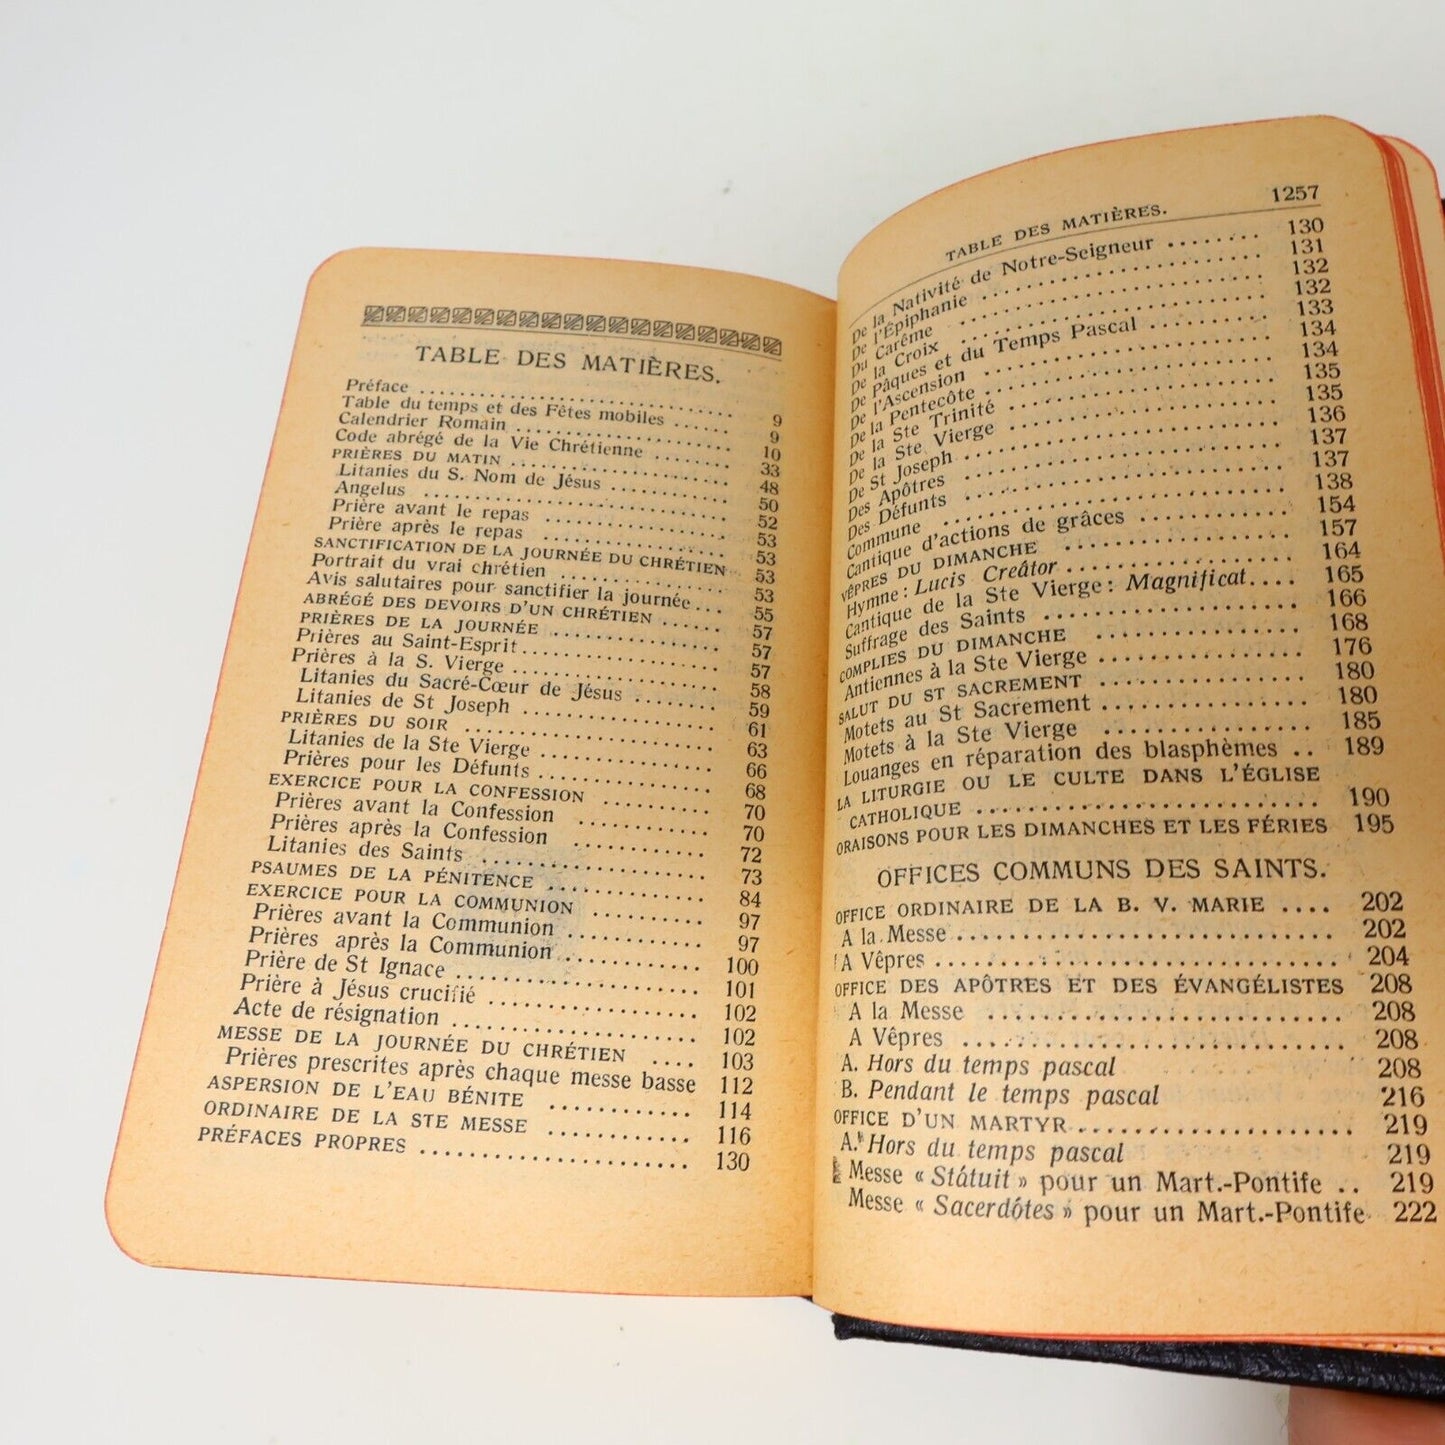 TABLE DES MATIÈRES.
Préface ........ 9
Table du temps et des Fêtes mobiles ...... 9
Calendrier Romain ........ 10
Code abrégé de la Vie Chrétienne ........ 33
PRIÈRES DU MATIN ........ 48
Litanies du S. Nom de Jésus ........ 50
Angelus ........ 52
Prière avant le repas ........ 53
Prière après le repas ........ 53
SANCTIFICATION DE LA JOURNÉE DU CHRÉTIEN 53
Portrait du vrai chrétien ........ 53
Avis salutaires pour sanctifier la journée ... 55
ABRÉGÉ DES DEVOIRS D'UN CHRÉTIEN ...... 57
PRIÈRES DE LA JOURNÉE ........ 57
Prières au Saint-Esprit ........ 57
Prières à la S. Vierge ........ 58
Litanies du Sacré-Cœur de Jésus ........ 59
Litanies de St Joseph ........ 61
PRIÈRES DU SOIR ........ 63
Litanies de la Ste Vierge ........ 66
Prières pour les Défunts ........ 68
EXERCICE POUR LA CONFESSION ........ 70
Prières avant la Confession ........ 70
Prières après la Confession ........ 72
Litanies des Saints ........ 73
PSAUMES DE LA PÉNITENCE ........ 84
EXERCICE POUR LA COMMUNION ........ 97
Prières avant la Communion ........ 97
Prières après la Communion ........ 100
Prière de St Ignace ........ 101
Prière à Jésus crucifié ........ 102
Acte de résignation ........ 102
MESSE DE LA JOURNÉE DU CHRÉTIEN .... 103
Prières prescrites après chaque messe basse 112
ASPERSION DE L'EAU BÉNITE ........ 114
ORDINAIRE DE LA STE MESSE ........ 116
PRÉFACES PROPRES ........ 130
TABLE DES MATIÈRES. 1257
De la Nativité de Notre-Seigneur ........ 130
De l'Épiphanie ........ 131
Du Carême ........ 132
De la Croix ........ 132
De Pâques et du Temps Pascal ........ 133
De l'Ascension ........ 134
De la Pentecôte ........ 134
De la Ste Trinité ........ 135
De la Ste Vierge ........ 135
De St Joseph ........ 136
Des Apôtres ........ 137
Des Défunts ........ 137
Commune ........ 138
Cantique d'actions de grâces ........ 154
VÊPRES DU DIMANCHE ........ 157
Hymne : Lucis Creâtor ........ 164
Cantique de la Ste Vierge : Magnificat .... 165
Suffrage des Saints ........ 166
COMPLIES DU DIMANCHE ........ 168
Antiennes à la Ste Vierge ........ 176
SALUT DU ST SACREMENT ........ 180
Motets au St Sacrement ........ 180
Motets à la Ste Vierge ........ 185
Louanges en réparation des blasphèmes .. 189
LA LITURGIE OU LE CULTE DANS L'ÉGLISE
CATHOLIQUE ........ 190
ORAISONS POUR LES DIMANCHES ET LES FÉRIES 195
OFFICES COMMUNS DES SAINTS.
OFFICE ORDINAIRE DE LA B. V. MARIE .... 202
A la Messe ........ 202
A Vêpres ........ 204
OFFICE DES APÔTRES ET DES ÉVANGÉLISTES 208
A la Messe ........ 208
A Vêpres ........ 208
A. Hors du temps pascal 208
B. Pendant le temps pascal 216
OFFICE D'UN MARTYR ........ 219
A. Hors du temps pascal 219
Messe « Státuit » pour un Mart.-Pontife .. 219
Messe « Sacerdótes » pour un Mart.-Pontife 222